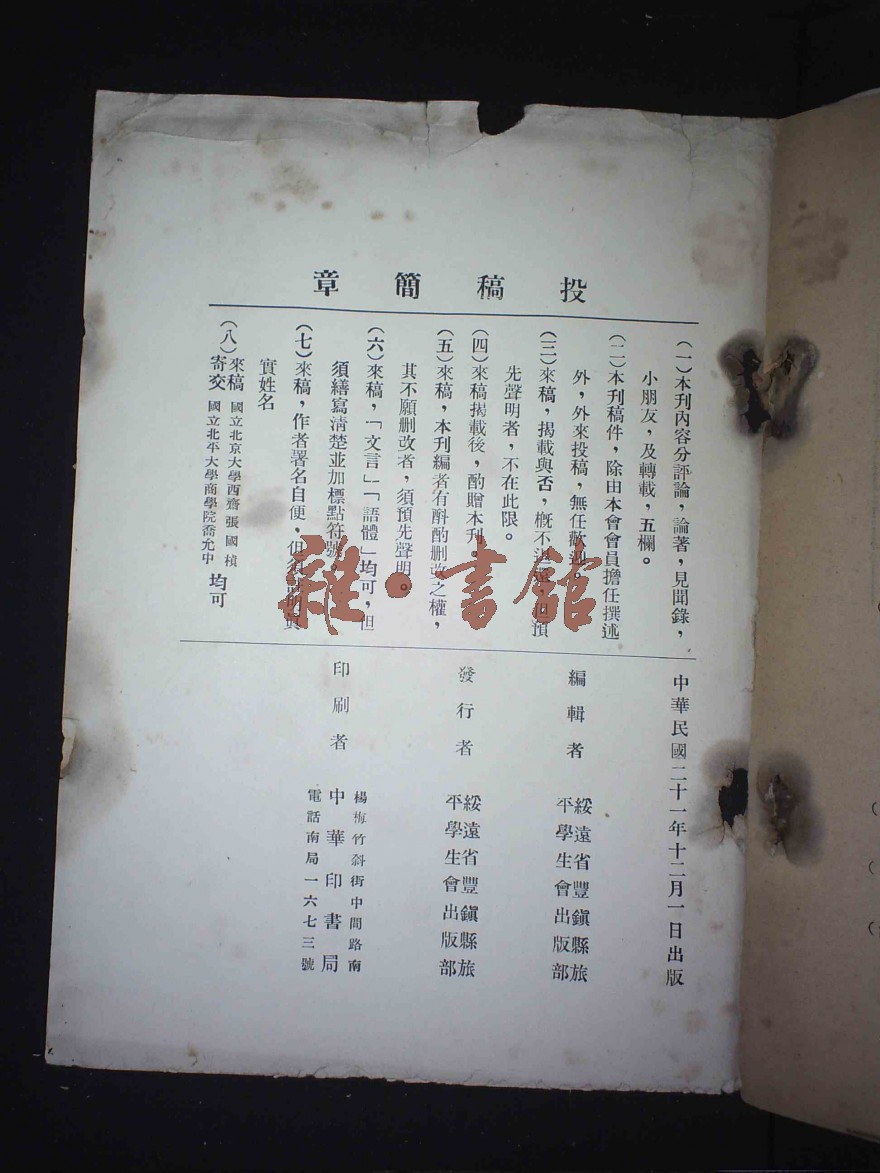 投稿簡章
（一）本刊內容分評論，論著，見聞錄，
小朋友，及轉載，五欄。
（二）本刊稿件，除由本會會員擔任撰述
外，外來投稿，無任歡迎。
（三）來稿，揭載與否，概不退還，但預
先聲明者，不在此限。
（四）來稿揭載後，酌贈本刊
（五）來稿，本刊編者有斟酌刪改之權，
其不願刪改者，須預先聲明。
（六）來稿，「文言」「語體」均可，但
須繕寫清楚並加標點符號
（七）來稿，作者署名自便，但須註明眞
實姓名
（八）來稿寄交 國立北京大學西齋張國楨 國立北平大學商學院喬允中 均可
中華民國二十一年十二月一日出版
編輯者 綏遠省豐鎭縣旅平學生會出版部
發行者 綏遠省豐鎭縣旅平學生會出版部
印刷者 中華印書局
楊梅竹斜街中間路南
電話南局一六七三號
雜·書館